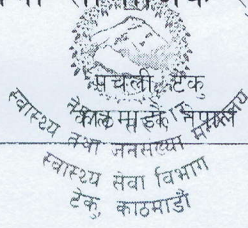 पचली, टेकु
काठमाडौं, नेपाल
स्वास्थ्य तथा जनसंख्या मन्त्रालय
स्वास्थ्य सेवा विभाग
टेकु, काठमाडौं